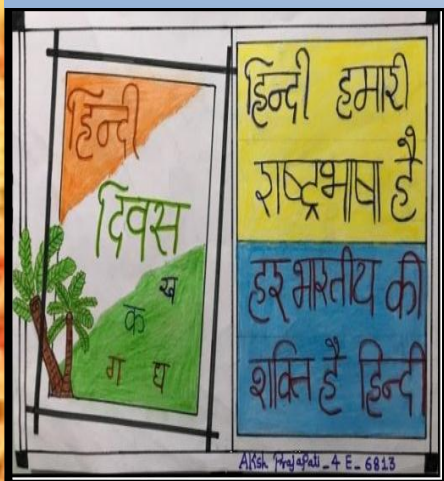 हिन्दी
दिवस
ख
क
ग घ
हिन्दी हमारी
राष्ट्रभाषा है
हर भारतीय की
शक्ति है हिन्दी
Aksh Prajapati_4 E_6813